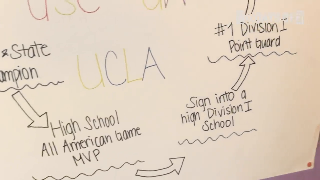 USC
UCLA
#1 Division I
Point Guard
* State
High School
All American Game
MVP
Sign into a
high Division I
School